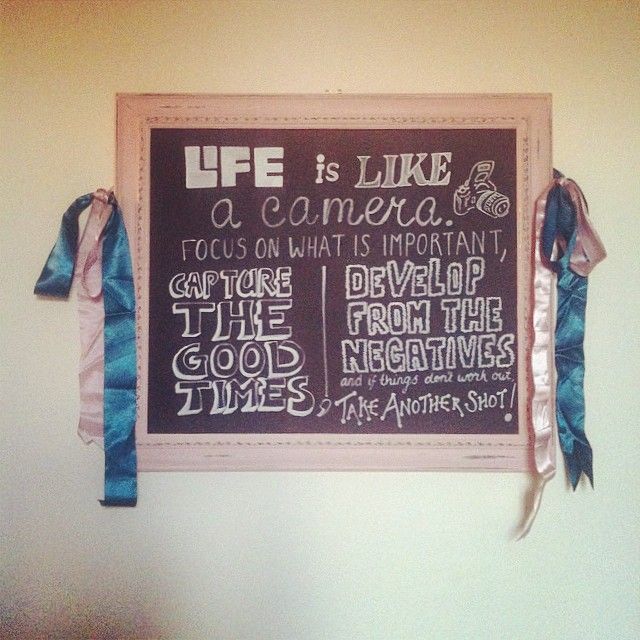 LIFE is LIKE
a camera.
FOCUS ON WHAT IS IMPORTANT,
CAPTURE
THE
GOOD
TIMES,
DEVELOP
FROM THE
NEGATIVES
and if things don't work out,
TAKE ANOTHER SHOT!